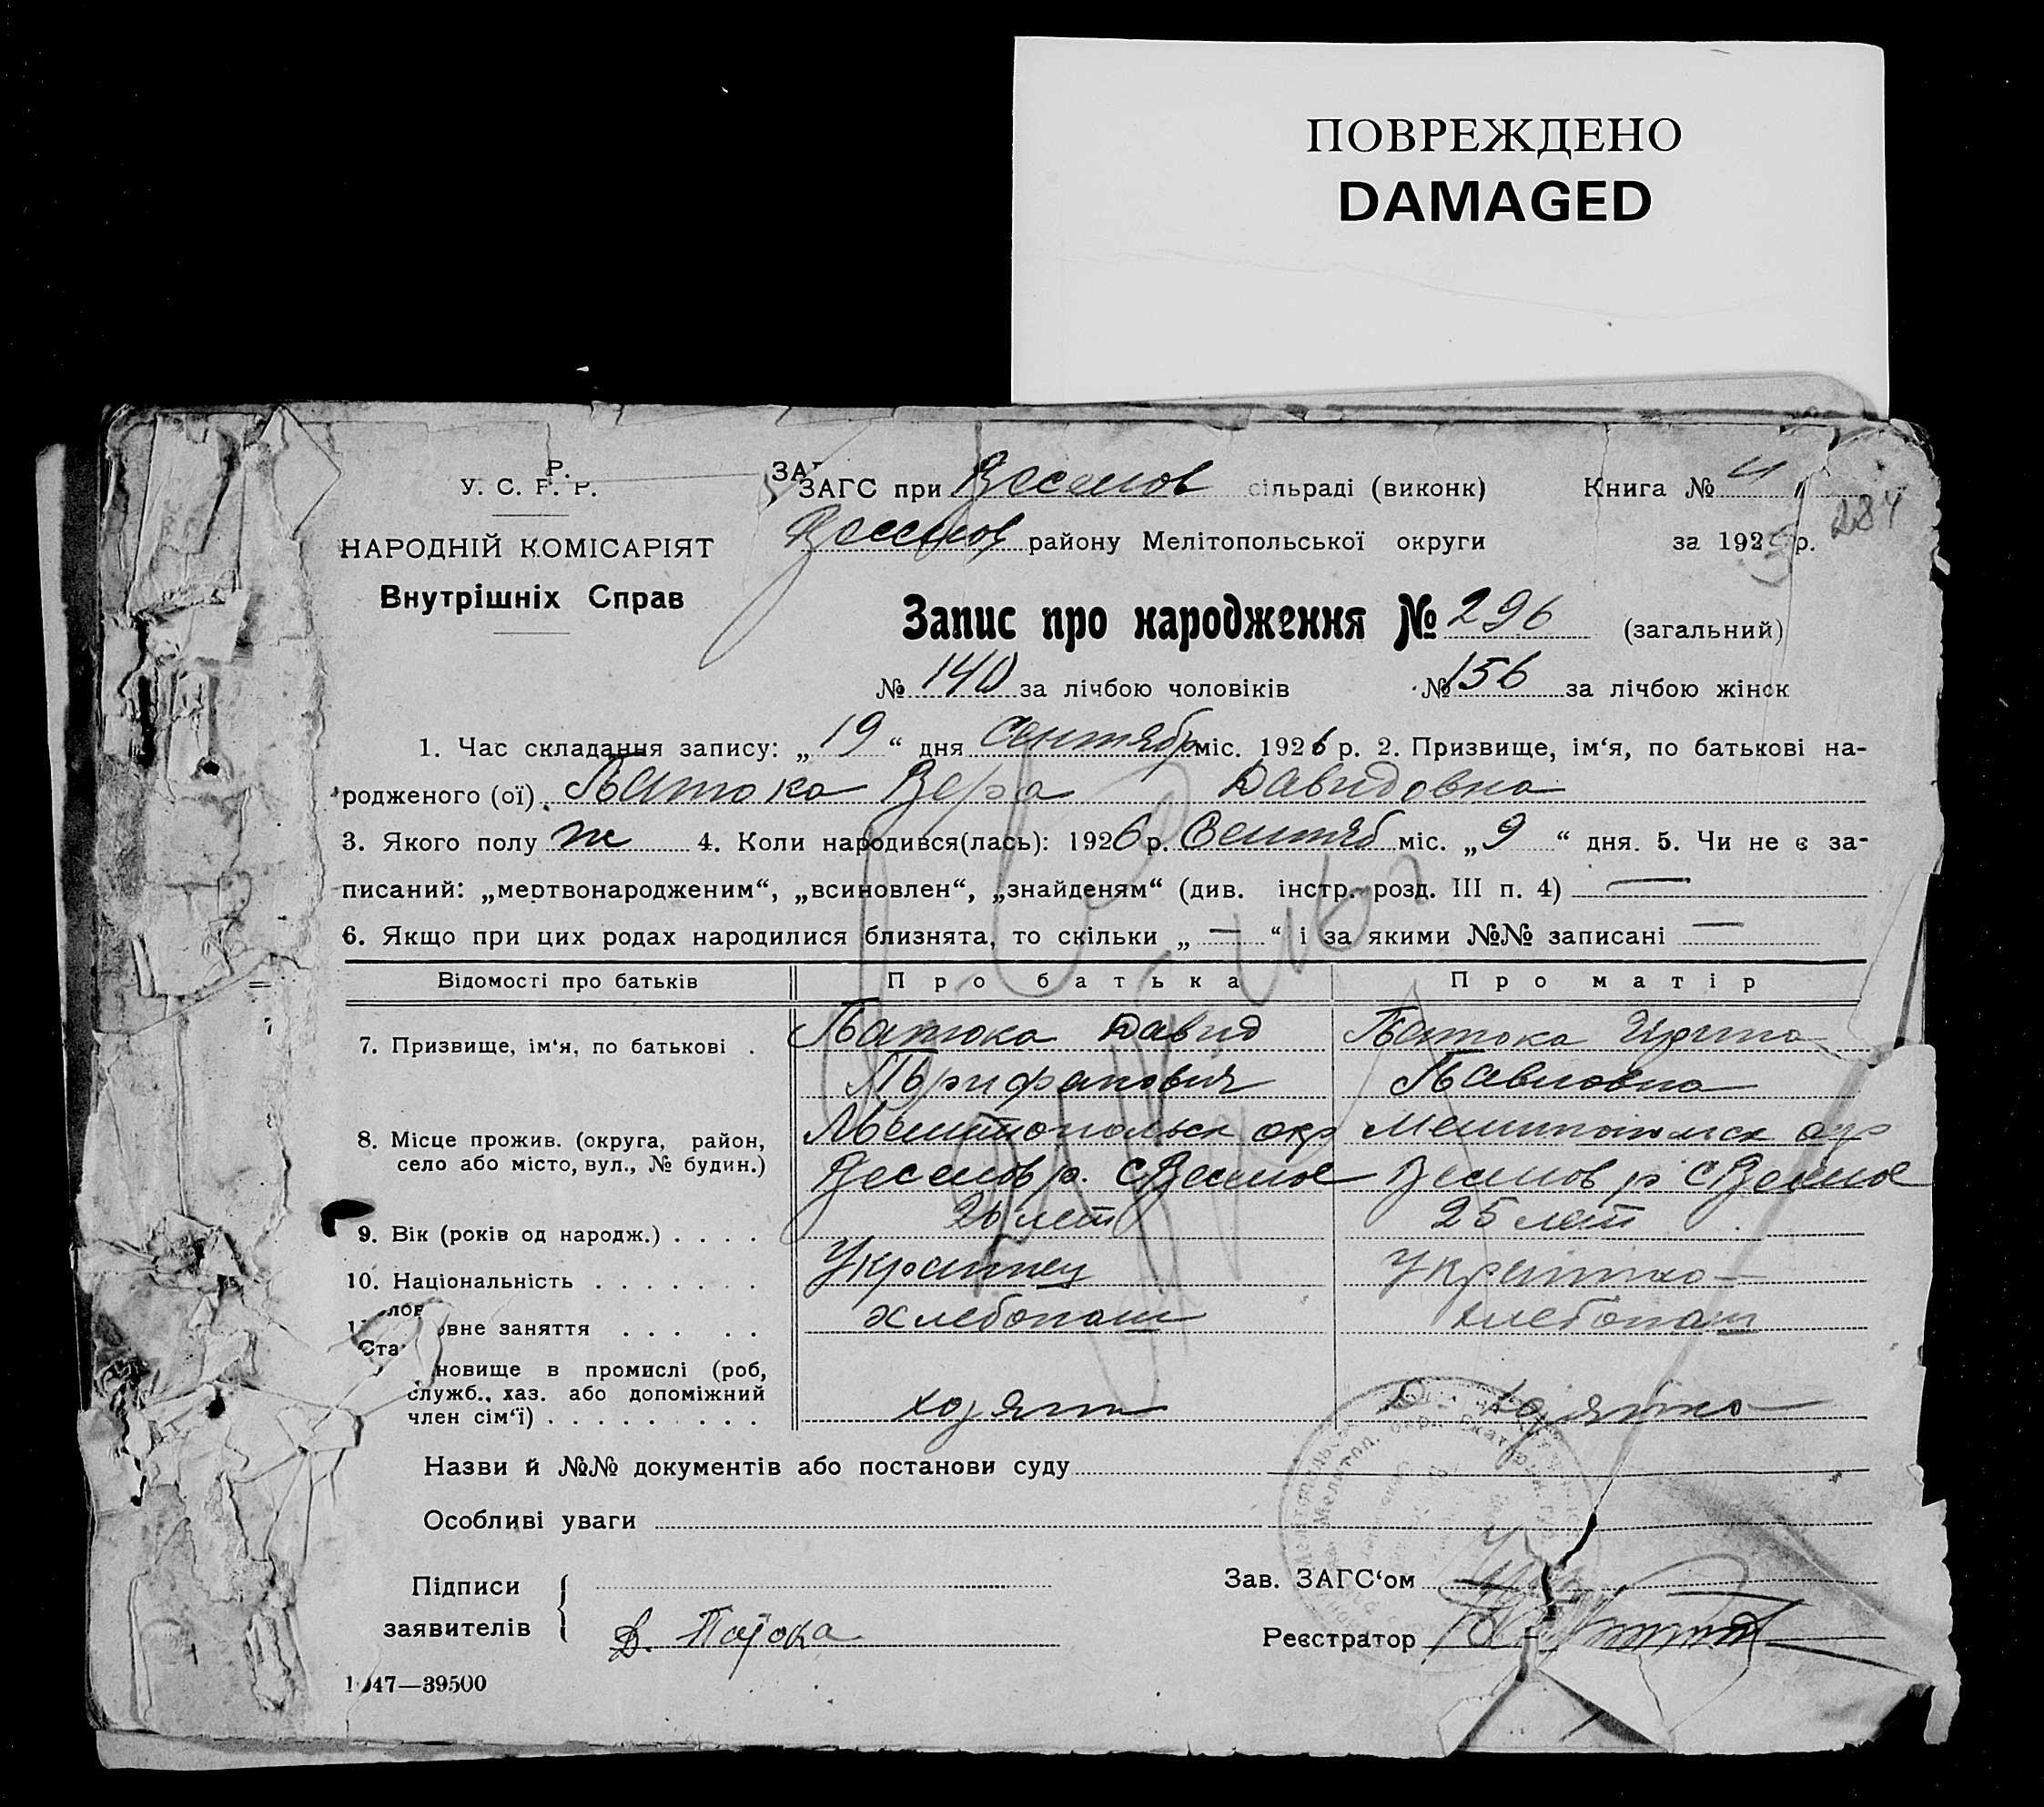 ПОВРЕЖДЕНО
DAMAGED
У. С. Р. Р.
ЗАГС при Веселов сільраді (виконк) Книга № 4
284
НАРОДНІЙ КОМІСАРІЯТ
Внутрішніх Справ
Веселов району Мелітопольської округи за 192 р.
Запис про народження № 296 (загальний)
№ 140 за лічбою чоловіків № 156 за лічбою жінок
1. Час складання запису: „19“ дня Сентября міс. 1926 р. 2. Призвище, ім‘я, по батькові на-
родженого (ої) Патока Вера Давидовна
3. Якого полу ж 4. Коли народився(лась): 1926 р. Сентяб міс. „9“ дня. 5. Чи не є за-
писаний: „мертвонародженим“, „всиновлен“, „знайденям“ (див. інстр. розд. III п. 4) —
6. Якщо при цих родах народилися близнята, то скільки „—“ і за якими №№ записані —
Відомості про батьків Про батька Про матір
7. Призвище, ім‘я, по батькові . Патока Давид Патока Ирина
Трифанович Павловна
8. Місце прожив. (округа, район, Мелитопольск окр Мелитопольск окр
село або місто, вул., № будин.) Веселов р. с Веселое Веселов р с Веселое
9. Вік (років од народж.) . . . . 26 лет 25 лет
10. Національність . . . . . . . Украинец Украинка
овне заняття . . . . . хлебопаш хлебопаш
новище в промислі (роб,
служб., хаз. або допоміжний
член сім‘ї) . . . . . . . . . хозяин хозяйка
Назви й №№ документів або постанови суду
Особливі уваги
Підписи
заявителів
Д. Патока
Зав. ЗАГС‘ом
Реєстратор
1047—39500